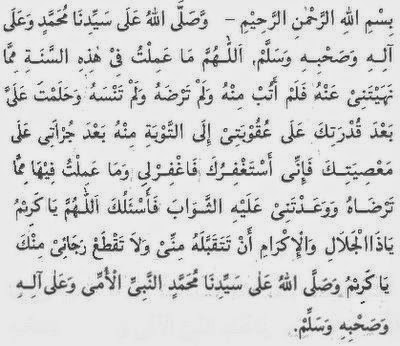 بِسْمِ اللهِ الرَّحْمٰنِ الرَّحِيْمِ – وَّصَلَّى اللهُ عَلَى سَيِّدِنَا مُحَمَّدٍ وَعَلَى
آلِـهِ وَصَحْبِـهِ وَسَلَّمَ. اَللّٰـهُمَّ مَا عَمِلْتُ فِيْ هٰذِهِ السَّنَـةِ مِمَّا
نَهَيْتَنِيْ عَنْهُ فَلَمْ أَتُبْ مِنْهُ وَلَمْ تَرْضَهُ وَلَمْ تَنْسَهُ وَحَلَمْتَ عَلَيَّ
بَعْدَ قُدْرَتِكَ عَلَى عُقُوْبَتِيْ إِلَى التَّوْبَةِ مِنْهُ بَعْدَ جُرْأَتِي عَلَى
مَعْصِيَتِـكَ فَإِنِّى أَسْتَغْفِرُكَ فَاغْفِرْلِي وَمَا عَمِلْتُ فِيْهَا مِمَّا
تَرْضَاهُ وَوَعَدْتَنِيْ عَلَيْهِ الثَّـوَابَ فَأَسْئَلُكَ اَللّٰهُمَّ يَا كَرِيْمُ
يَاذَا الْجَلَالِ وَالْإِكْرَامِ أَنْ تَتَقَبَّلَهُ مِنِّيْ وَلَا تَقْطَعْ رَجَائِيْ مِنْكَ
يَا كَرِيْمُ وَصَلَّى اللهُ عَلَى سَيِّدِنَا مُحَمَّدٍ النَّبِيِّ الْأُمِّى وَعَلَى آلِـهِ
وَصَحْبِهِ وَسَلِّمْ.